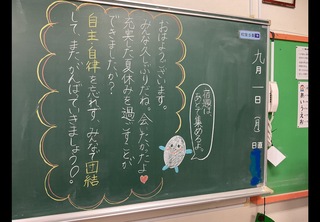 九月一日(月)
日直
おはようございます。
みんな久しぶりだね。会いたかたよ♡
充実した夏休みを過ごすことが
できましたか？
自主・自律を忘れず みんなで団結
して、またがんばっていきましょう。
宿題は
あとで集めるよ。